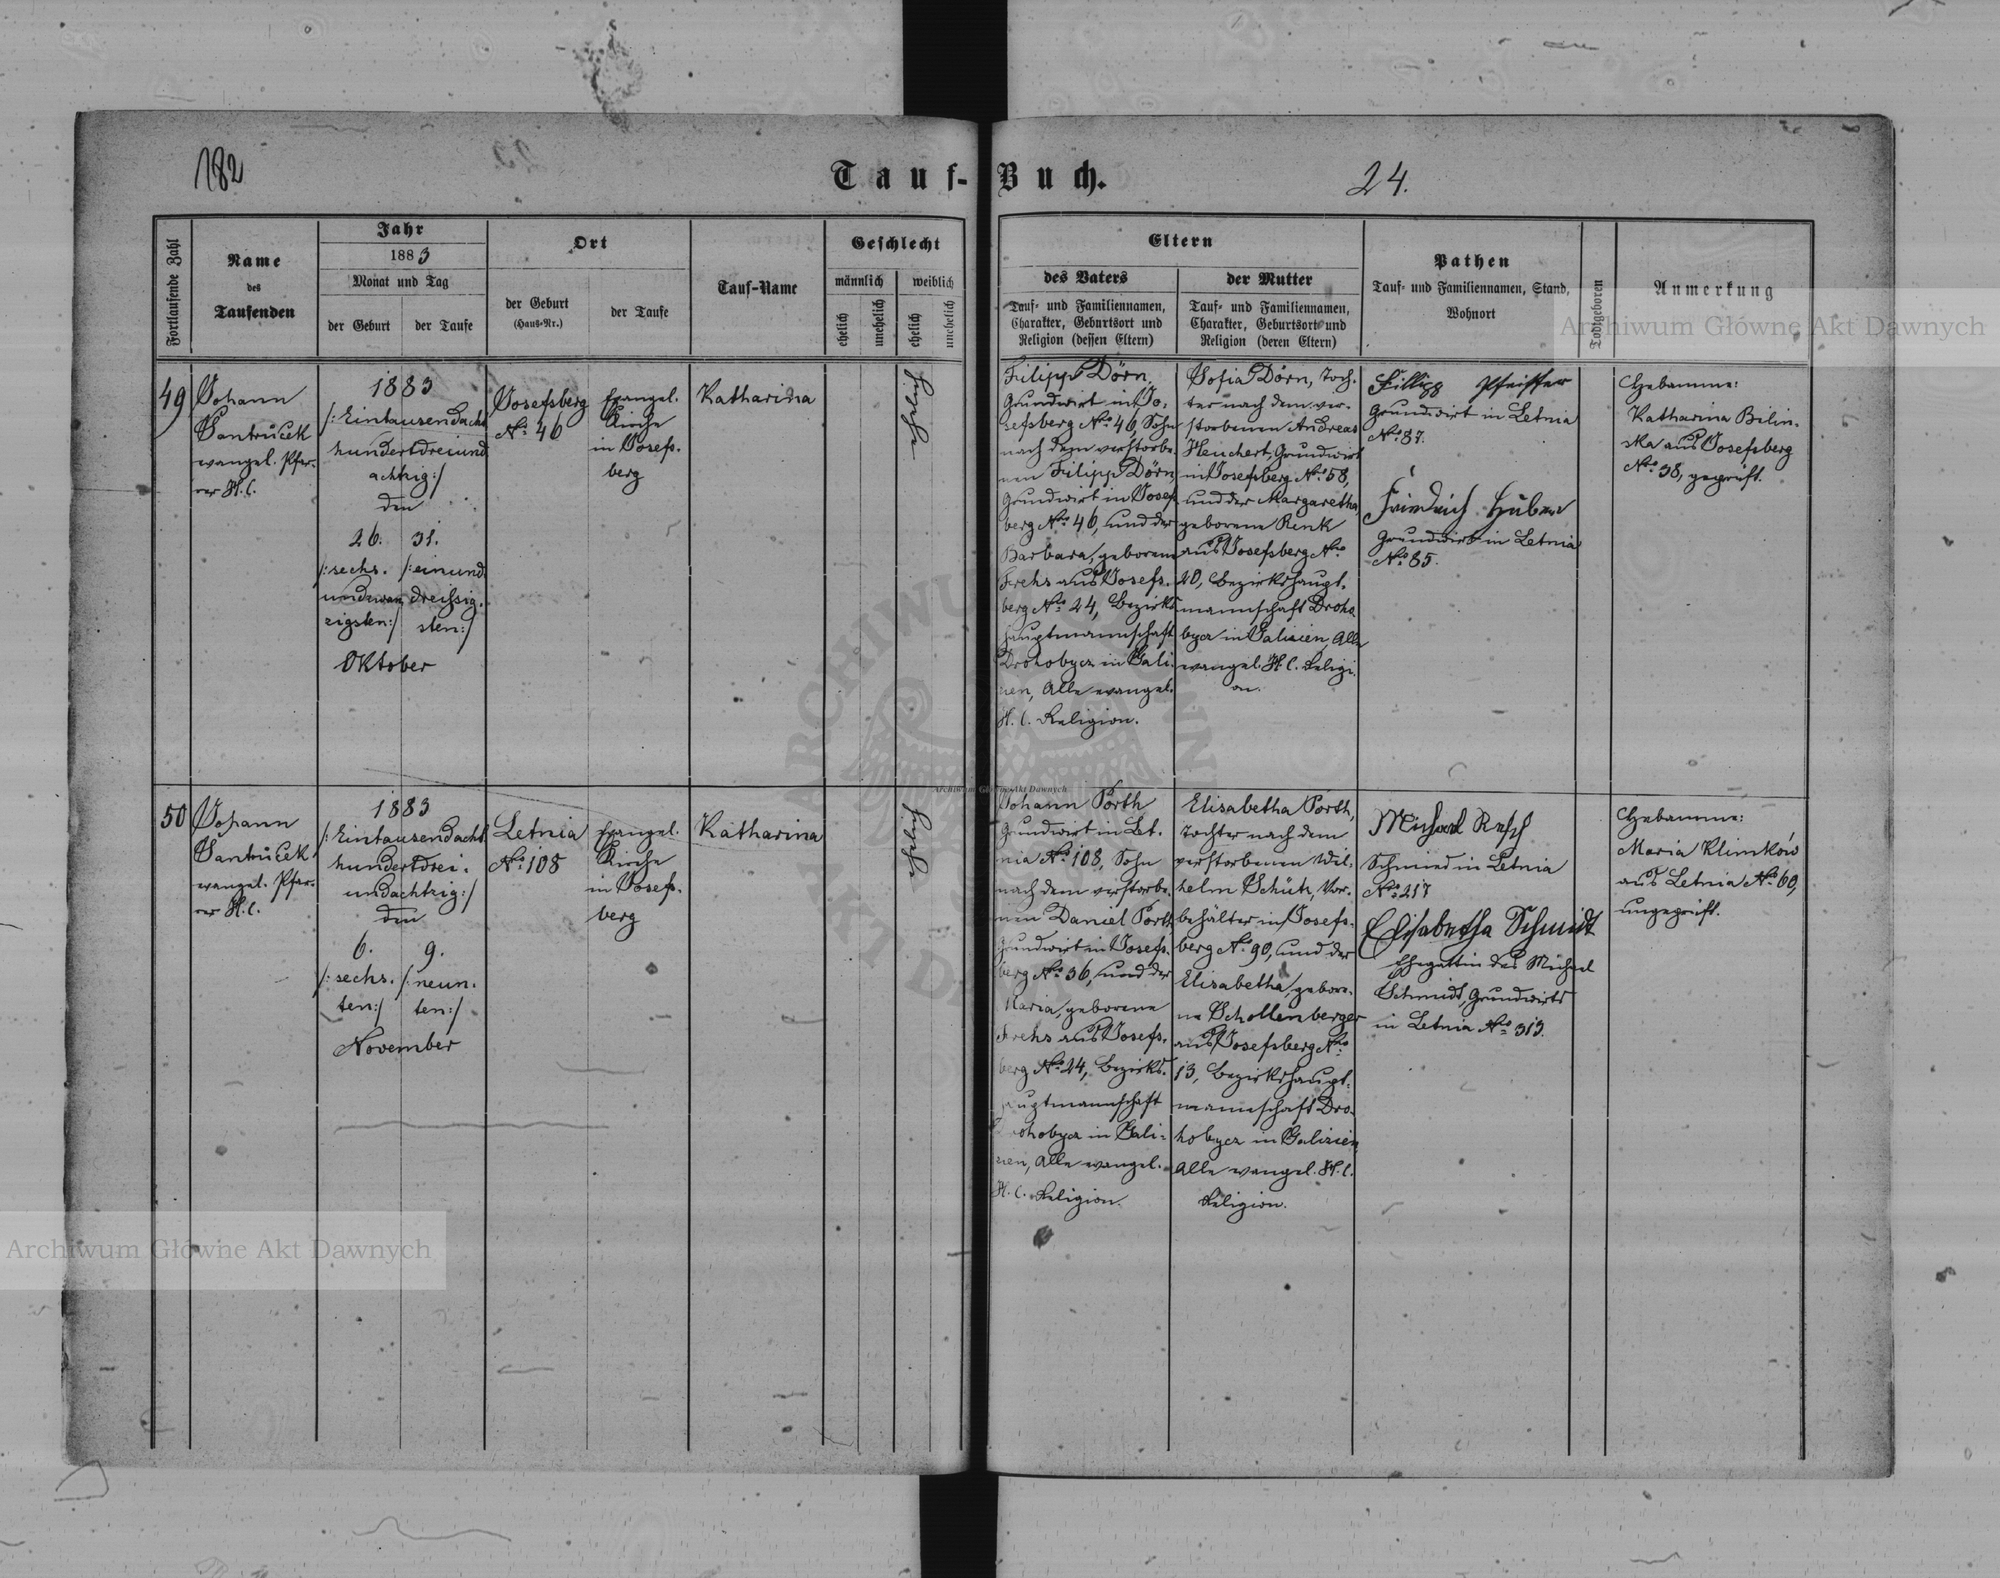 182
Tauf-Buch.
24.
Fortlaufende Zahl
Name
des
Taufenden
Jahr
1883
Monat und Tag
der Geburt
der Taufe
Ort
der Geburt
(Haus-Nr.)
der Taufe
Tauf-Name
Geschlecht
männlich
weiblich
ehelich
unehelich
ehelich
unehelich
Eltern
des Vaters
Tauf- und Familiennamen,
Charakter, Geburtsort und
Religion (dessen Eltern)
der Mutter
Tauf- und Familiennamen,
Charakter, Geburtsort und
Religion (deren Eltern)
Pathen
Tauf- und Familiennamen, Stand,
Wohnort
Todtgeboren
Anmerkung
49
Johann
Santruček
evangel. Pfar-
rer H.C.
1883
/:Eintausendacht
hundertdreiund
achtzig:/
den
26.
31.
/:sechs.
undzwan
zigsten:/
/:einund.
dreissig.
sten:/
Oktober
Josefsberg
No. 46
Evangel.
Kirche
in Josefs.
berg
Katharina
Filipp Dörn,
Grundwirt in Jo.
sefsberg No. 46, Sohn
nach dem verstorbe.
nen Filipp Dörn,
Grundwirt in Josefs
berg No. 46, und der
Barbara, geborene
Frehs aus Josefs.
berg No. 24, Bezirks
hauptmannschaft
Drohobycz in Gali.
zien, Alle evangel.
H.C. Religion.
Sofia Dörn, Toch.
ter nach dem ver.
storbenen Andreas
Heuchert, Grundwirt
in Josefsberg No. 58,
und der Margaretha,
geborene Renk
aus Josefsberg No.
20, Bezirkshaupt.
mannschaft Droho
bycz in Galizien, Alle
evangel. H.C. Religi.
on.
Fillipp Pfeiffer
Grundwirt in Letnia
No. 87.
Friedrich Huber
Grundwirt in Letnia
No. 85.
Hebamme:
Katharina Bilin-
ska aus Josefsberg
No. 38, geprüft.
50
Johann
Santruček
evangel. Pfar-
rer H.C.
1883
/:Eintausendacht.
hundertdrei.
undachtzig:/
den
6.
9.
/:sechs.
ten:/
/:neun.
ten:/
November
Letnia
No. 108
Evangel.
Kirche
in Josefs.
berg
Katharina
Johann Porth
Grundwirt in Let.
nia No. 108, Sohn
nach dem verstorbe.
nen Daniel Porth,
Grundwirt in Josefs.
berg No. 36, und der
Maria, geborene
Frehs aus Josefs.
berg No. 24, Bezirks.
hauptmannschaft
Drohobycz in Gali-
zien, Alle evangel.
H.C. Religion.
Elisabetha Porth,
Tochter nach dem
verstorbenen Wil.
helm Schütz, Vor.
behälter in Josefs.
berg No. 90, und der
Elisabetha, gebore.
ne Schollenberger
aus Josefsberg No.
13, Bezirkshaupt.
mannschaft Dro.
hobycz in Galizien,
Alle evangel. H.C.
Religion.
Michael Resch
Schmied in Letnia
No. 217
Elisabetha Schmidt
Ehegattin des Michael
Schmidt, Grundwirts
in Letnia No. 313.
Hebamme:
Maria Klimków
aus Letnia No. 60,
ungeprüft.
Archiwum Główne Akt Dawnych
Archiwum Główne Akt Dawnych
Archiwum Główne Akt Dawnych